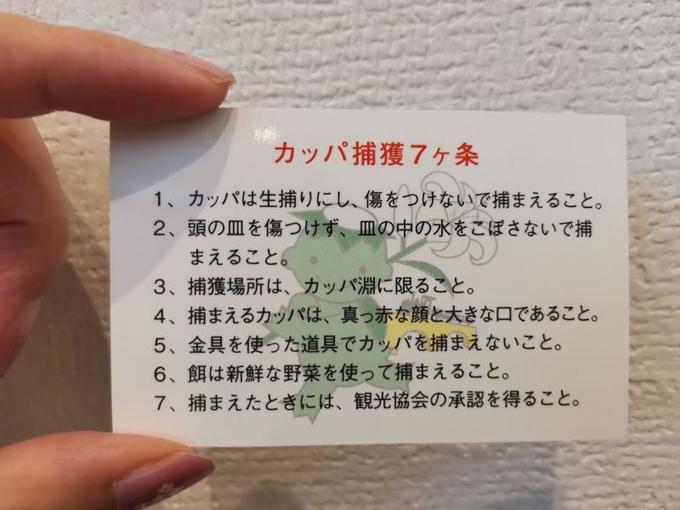 カッパ捕獲７ヶ条
１、カッパは生捕りにし、傷をつけないで捕まえること。
２、頭の皿を傷つけず、皿の中の水をこぼさないで捕
まえること。
３、捕獲場所は、カッパ淵に限ること。
４、捕まえるカッパは、真っ赤な顔と大きな口であること。
５、金具を使った道具でカッパを捕まえないこと。
６、餌は新鮮な野菜を使って捕まえること。
７、捕まえたときには、観光協会の承認を得ること。